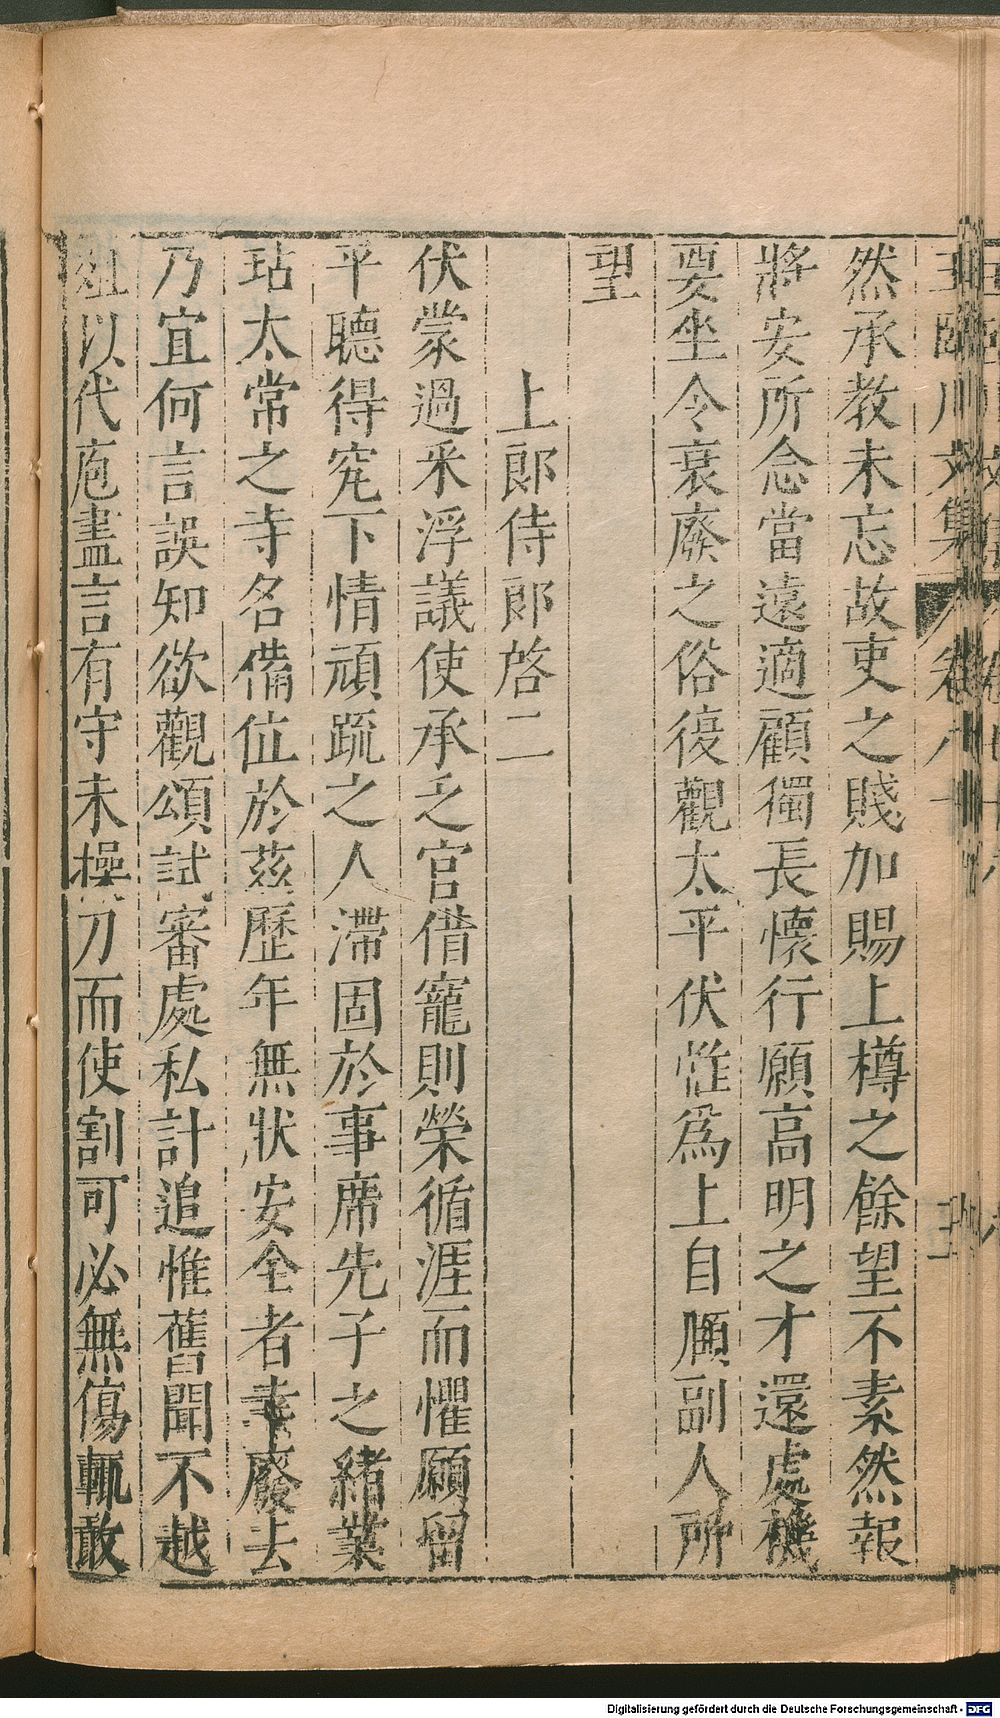 然承教未忘故吏之賤加賜上樽之餘望不素然報
將安所念當遠適顧獨長懷行願高明之才還處機
要坐令衰廢之俗復觀太平伏惟爲上自頤副人所
望
上郎侍郎啓二
伏蒙過采浮議使承乏官借寵則榮循涯而懼願留
平聽得究下情頑疏之人滯固於事席先子之緒業
玷太常之寺名備位於兹歷年無狀安全者幸廢去
乃宜何言誤知欲觀頌試審處私計追惟舊聞不越
俎以代庖盡言有守未操刀而使割可必無傷輒敢
王臨川文集 卷八十 三
Digitalisierung gefördert durch die Deutsche Forschungsgemeinschaft - DFG